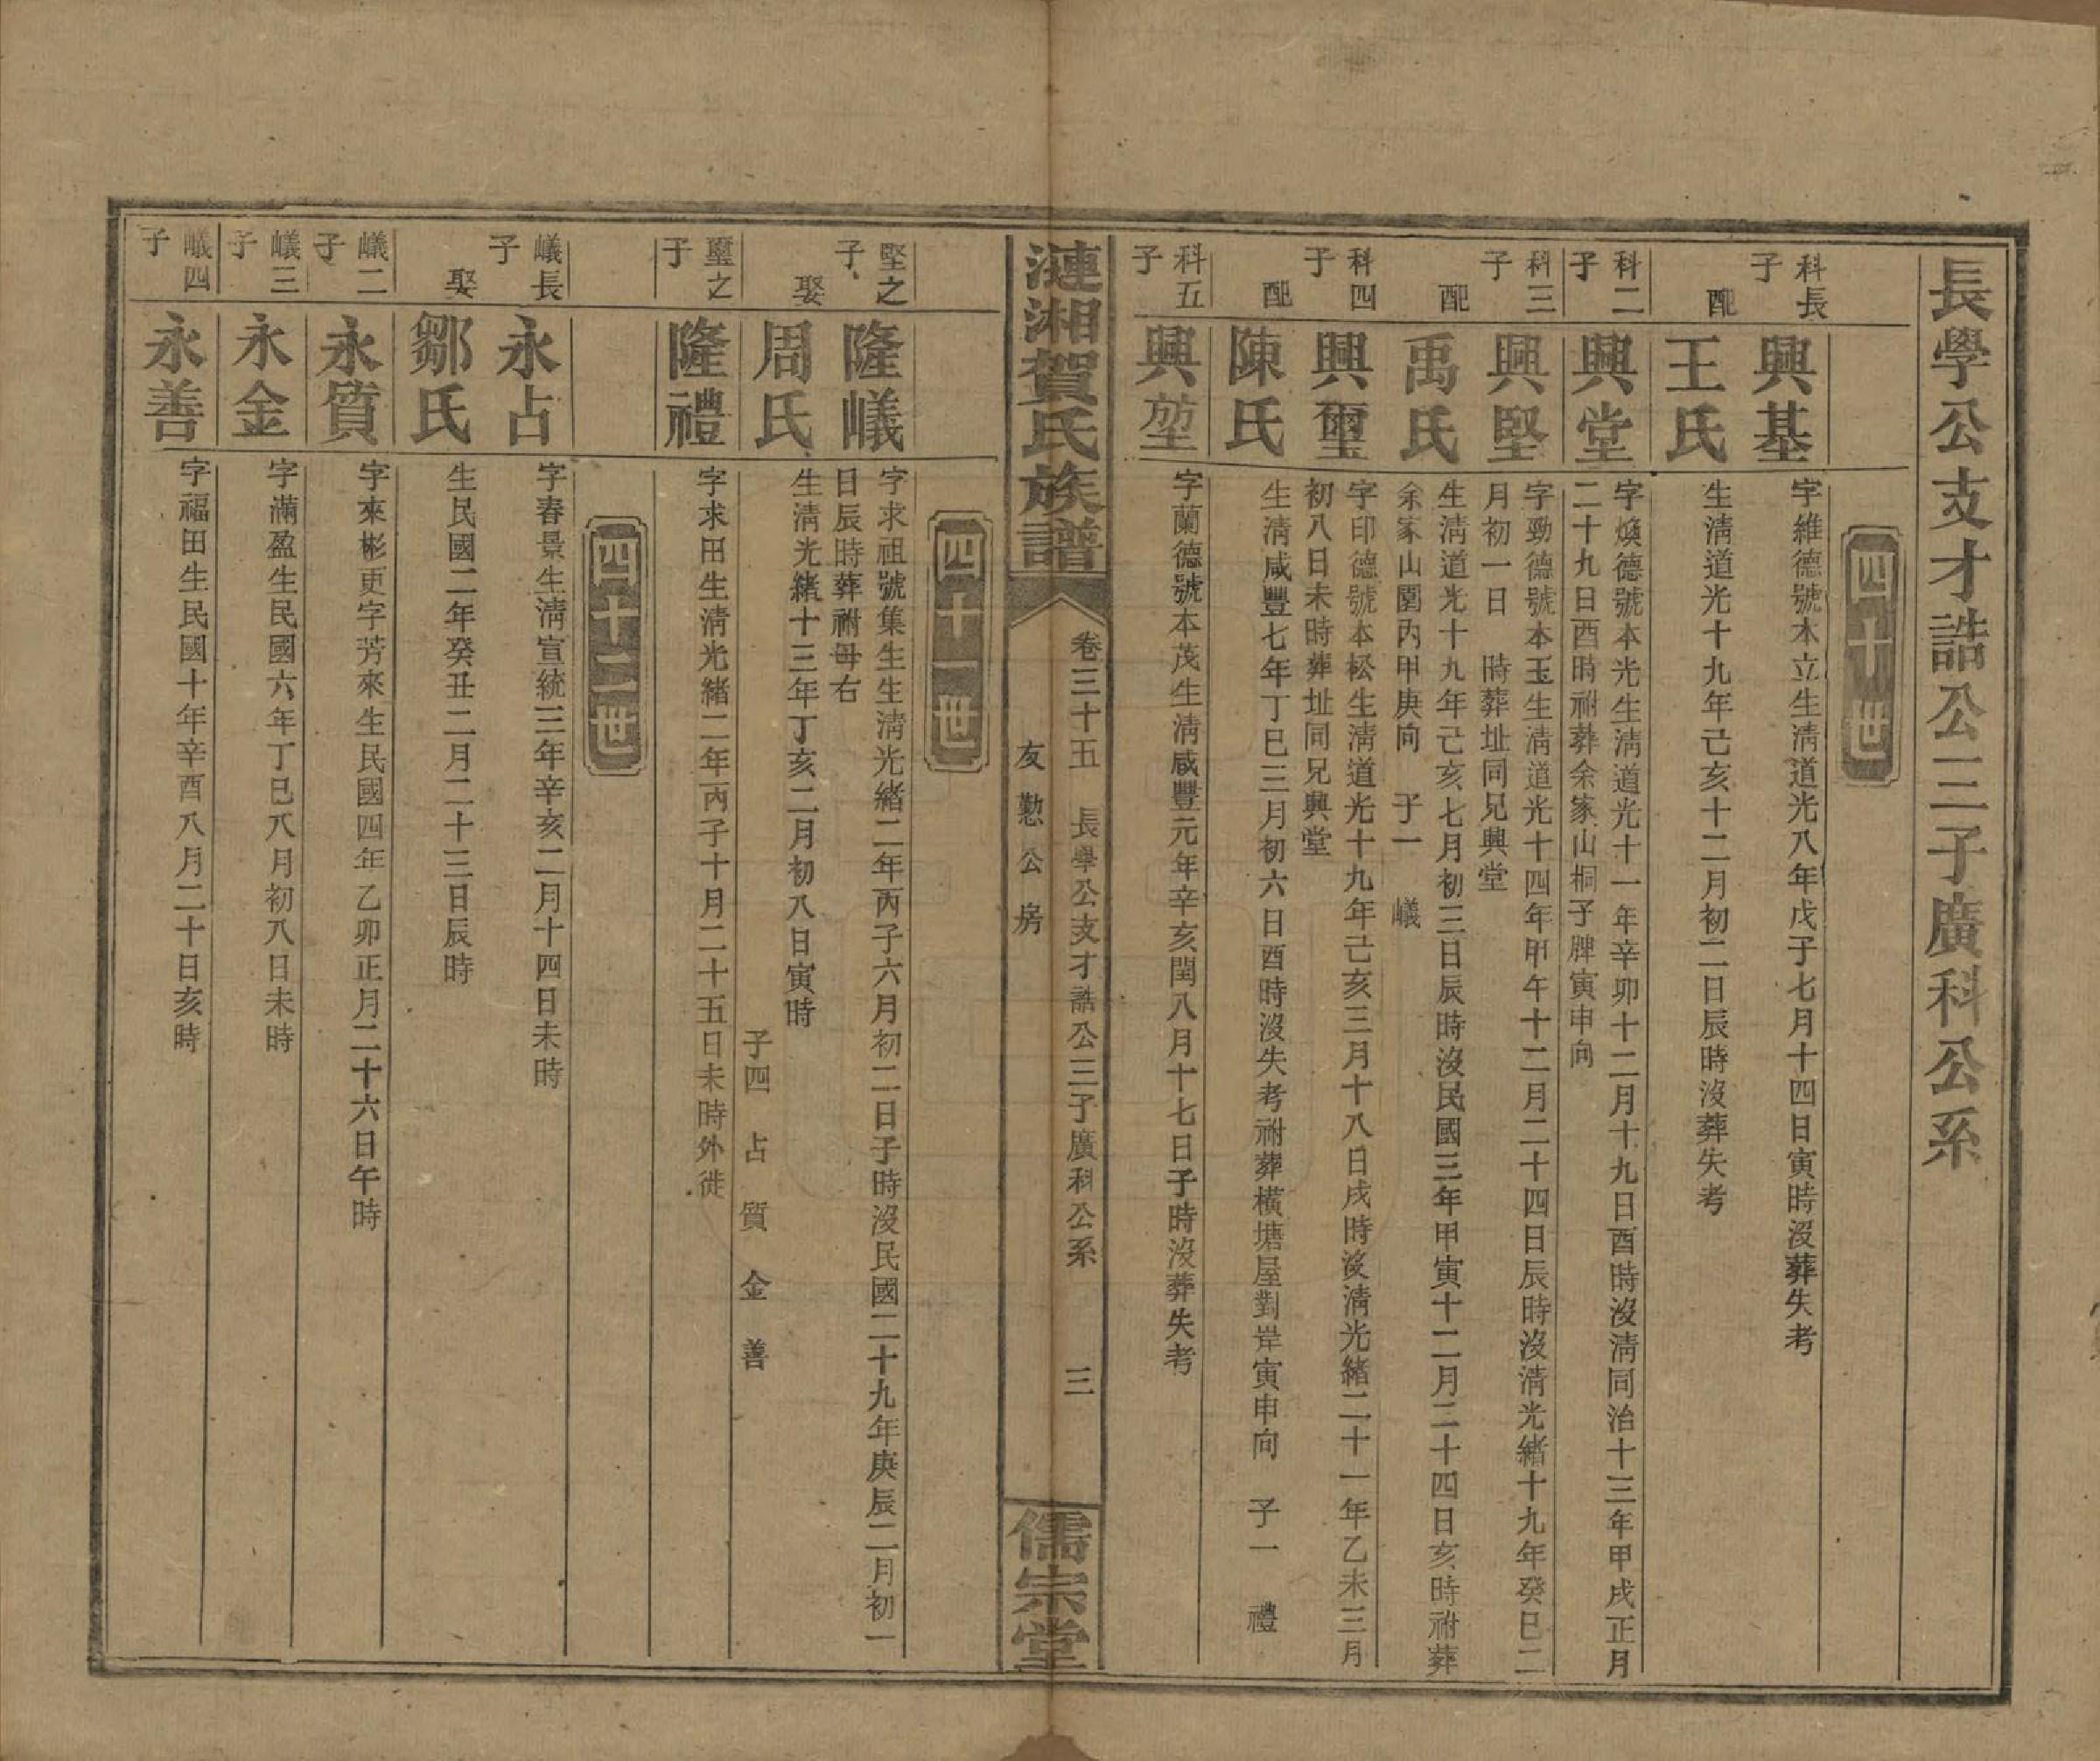 長學公支才誥公三子廣科公系
四十世
科長子
興基
字維德號木立生淸道光八年戊子七月十四日寅時沒葬失考
配
王氏
生淸道光十九年己亥十二月初二日辰時沒葬失考
科二子
興堂
字煥德號本光生淸道光十一年辛卯十二月十九日酉時沒淸同治十三年甲戌正月
二十九日酉時祔葬余家山桐子脾寅申向
科三子
興堅
字勁德號本玉生淸道光十四年甲午十二月二十四日辰時沒淸光緖十九年癸巳二
月初一日　時葬址同兄興堂
配
禹氏
生淸道光十九年己亥七月初三日辰時沒民國三年甲寅十二月二十四日亥時祔葬
余家山圍內甲庚向　子一　㠖
科四子
興璽
字印德號本松生淸道光十九年己亥三月十八日戌時沒淸光緖二十一年乙未三月
初八日未時葬址同兄興堂
配
陳氏
生淸咸豐七年丁巳三月初六日酉時沒失考祔葬橫塘屋對岸寅申向　子一　禮
科五子
興堃
字蘭德號本茂生淸咸豐元年辛亥閏八月十七日子時沒葬失考
漣湘賀氏族譜
卷三十五　長學公支才誥公三子廣科公系　三
友懃公房
儒宗堂
四十一世
堅之子
隆㠖
字求祖號集生生淸光緖二年丙子六月初二日子時沒民國二十九年庚辰二月初一
日辰時葬祔母右
娶
周氏
生淸光緖十三年丁亥二月初八日寅時
子四　占　質　金　善
璽之子
隆禮
字求田生淸光緖二年丙子十月二十五日未時外徙
四十二世
㠖長子
永占
字春景生淸宣統三年辛亥二月十四日未時
娶
鄒氏
生民國二年癸丑二月二十三日辰時
㠖二子
永質
字來彬更字芳來生民國四年乙卯正月二十六日午時
㠖三子
永金
字滿盈生民國六年丁巳八月初八日未時
㠖四子
永善
字福田生民國十年辛酉八月二十日亥時